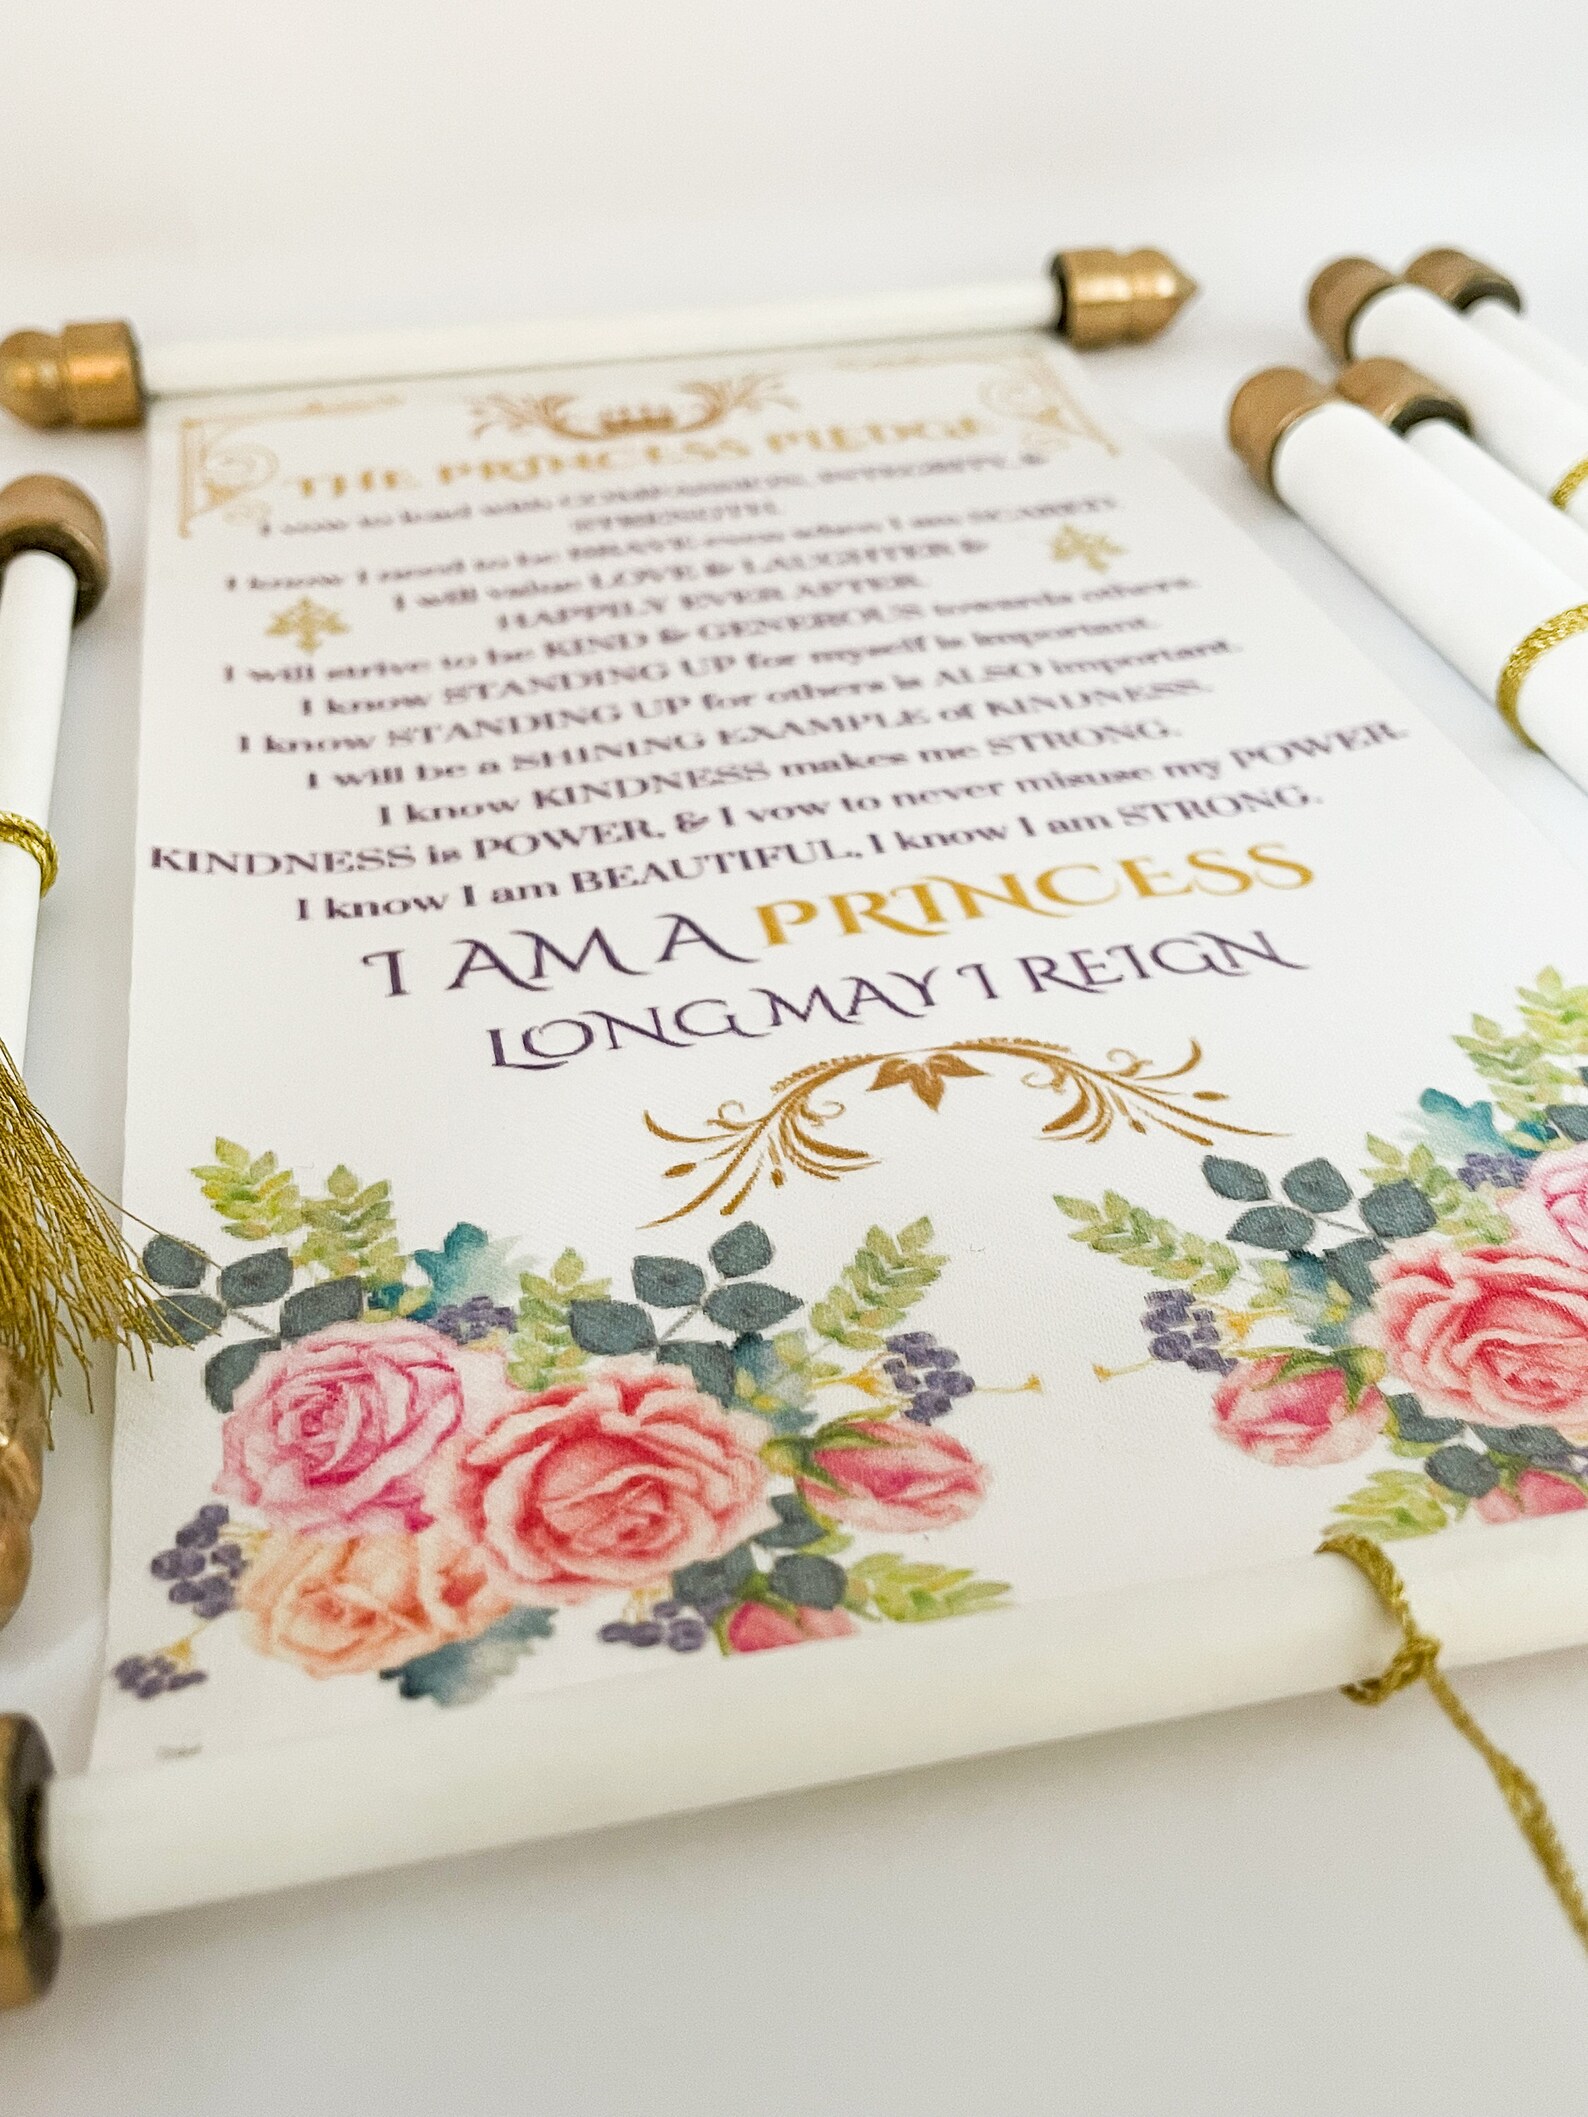 THE PRINCESS PLEDGE
I vow to lead with COMPASSION, INTEGRITY, &
STRENGTH.
I know I need to be BRAVE even when I am SCARED.
I will value LOVE & LAUGHTER &
HAPPILY EVER AFTER.
I will strive to be KIND & GENEROUS towards others.
I know STANDING UP for myself is important.
I know STANDING UP for others is ALSO important.
I will be a SHINING EXAMPLE of KINDNESS.
I know KINDNESS makes me STRONG.
KINDNESS is POWER, & I vow to never misuse my POWER.
I know I am BEAUTIFUL, I know I am STRONG.
I AM A PRINCESS
LONG MAY I REIGN